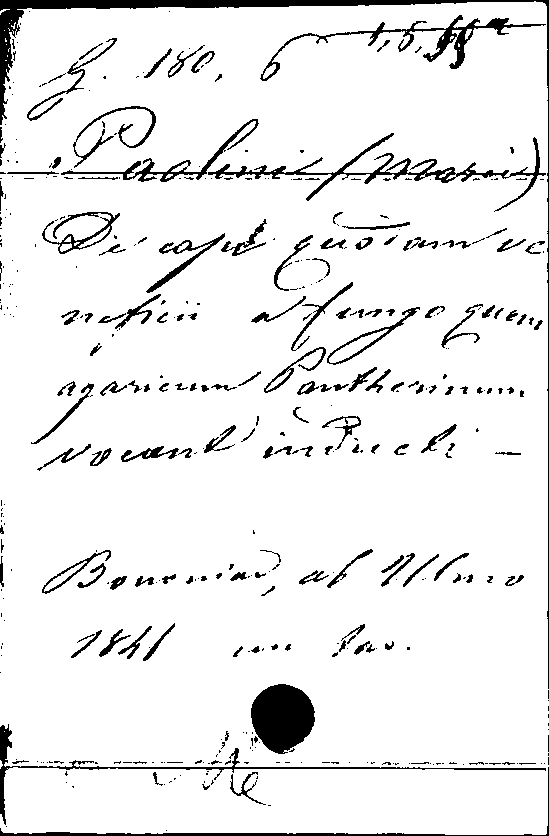 G. 180, 6
Paolini (Marii)
De casu quodam ve
neficii a fungo quem
agaricum Pantherinum
vocant inducti -
Bononiae, ab Ulmo
1841 con tav.